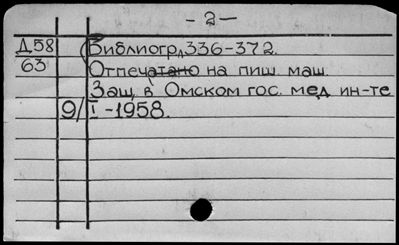 - 2 -
Д58 Библиогр л 336-372.
63 Отпечатано на пиш маш.
Защ в Омском гос. мед ин-те
9/I -1958.